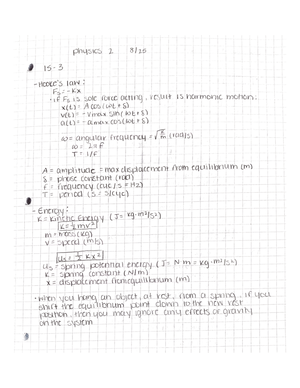 physics 2 8/25
15-3
- Hooke's Law:
Fs = -Kx
· if Fs is sole force acting, result is harmonic motion.
x(t) = A cos(ωt + δ)
v(t) = -Vmax sin(ωt + δ)
a(t) = -amax cos(ωt + δ)
ω = angular frequency = (rad/s)
T = 1/f
A = amplitude = max displacement from equilibrium (m)
δ = phase constant (rad)
f = frequency (cyc/s = Hz)
T = period (s = s/cyc)
- Energy:
K = kinetic Energy (J = kg·m²/s²)
K = ½mv²
m = mass (kg)
v = speed (m/s)
Us = ½ Kx²
Us = spring potential energy (J = N·m = kg·m²/s²)
K = spring constant (N/m)
x = displacement from equilibrium (m)
· when you hang an object, at rest, from a spring, if you
shift the equilibrium point down to the new rest
position, then you may ignore any effects of gravity
on the system